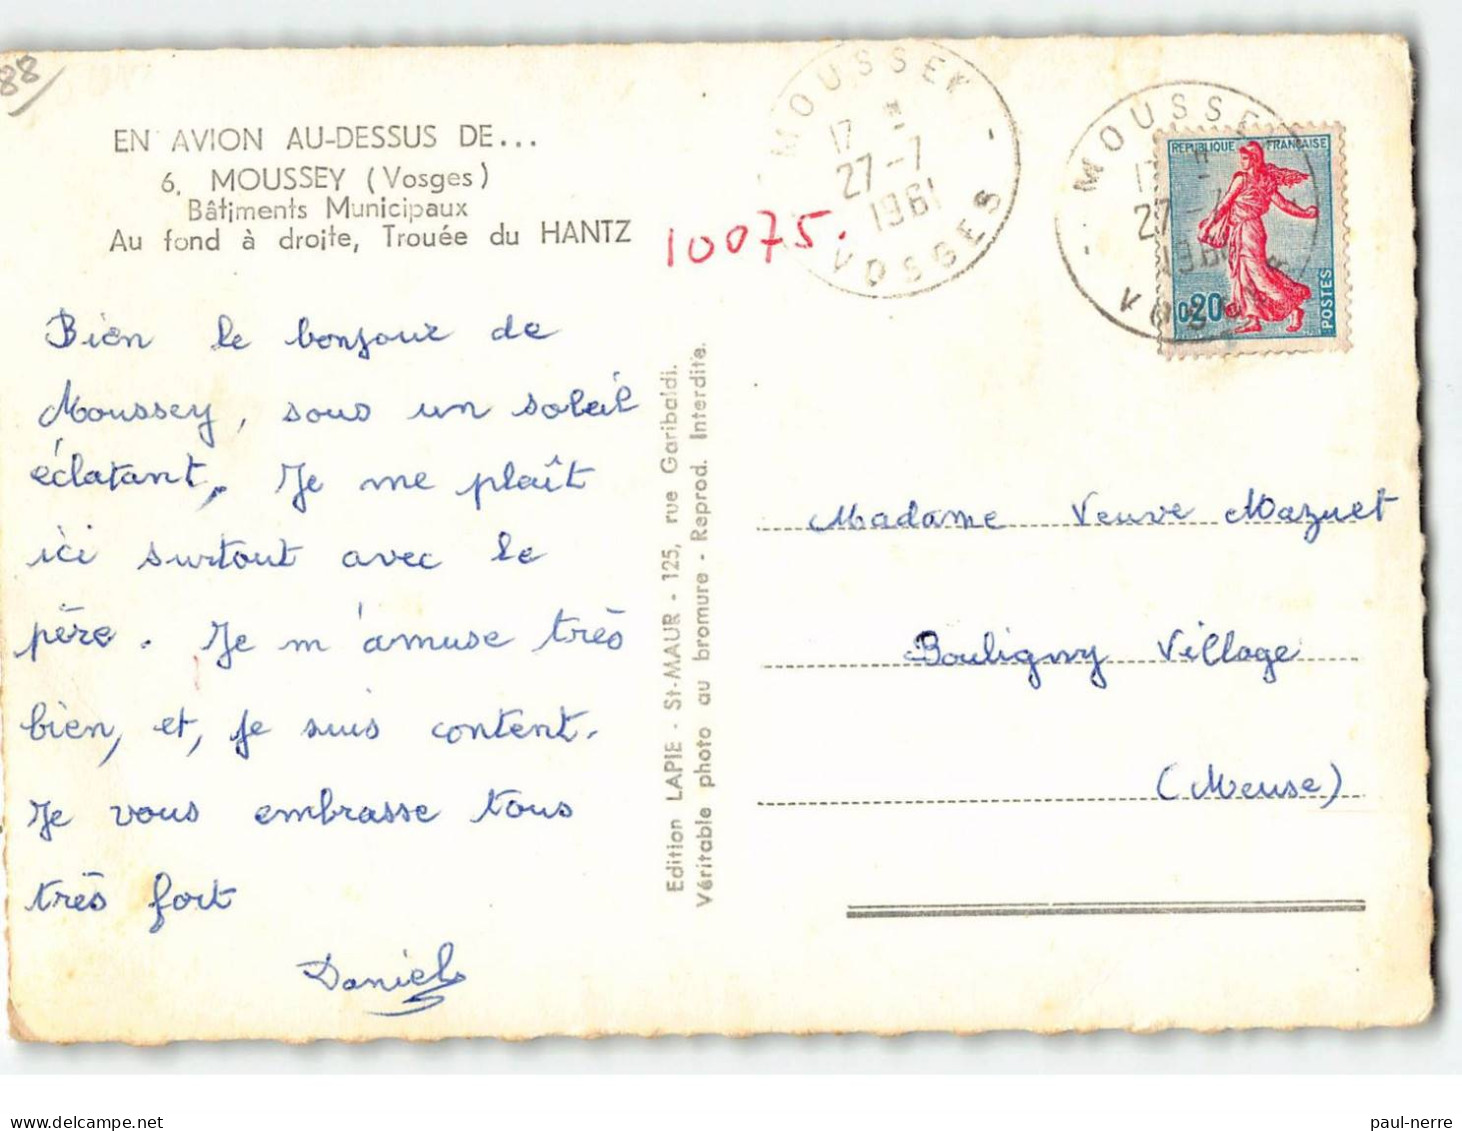 88
EN AVION AU-DESSUS DE...
6. MOUSSEY (Vosges)
Bâtiments Municipaux
Au fond à droite, Trouée du HANTZ
10075.
MOUSSEY
17 H
27-7
1961
VOSGES
MOUSSE
27-
196
VOSGES
REPUBLIQUE FRANÇAISE
0,20
POSTES
Bien le bonjour de
Moussey, sous un soleil
éclatant. Je me plaît
ici surtout avec le
père. Je m'amuse très
bien, et, je suis content.
Je vous embrasse tous
très fort
Daniel
Edition LAPIE - St-MAUR - 125, rue Garibaldi.
Véritable photo au bromure - Reprod. Interdite.
Madame Veuve Mazuet
Bouligny Village
(Meuse)
paul-nerre